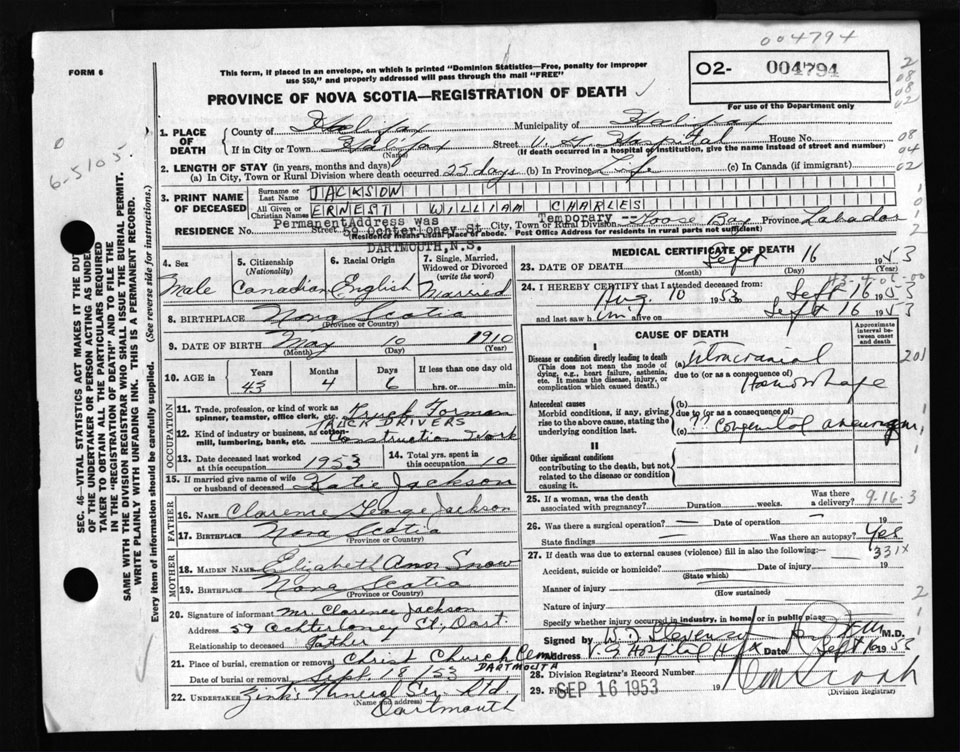 004794
FORM 6
This form, if placed in an envelope, on which is printed "Dominion Statistics—Free, penalty for improper
use $50," and properly addressed will pass through the mail "FREE"
O2- 004794
PROVINCE OF NOVA SCOTIA—REGISTRATION OF DEATH
For use of the Department only
1. PLACE OF DEATH
County of Halifax Municipality of Halifax
If in City or Town Halifax Street V. G. Hospital House No.
(Name) (If death occurred in a hospital or institution, give the name instead of street and number)
2. LENGTH OF STAY (in years, months and days)
(a) In City, Town or Rural Division where death occurred 25 days (b) In Province Life (c) In Canada (if immigrant)
3. PRINT NAME OF DECEASED
Surname or Last Name JACKSON
All Given or Christian Names ERNEST WILLIAM CHARLES
Permanent Address was Temporary --
RESIDENCE No. Street 59 Ochterloney St City, Town or Rural Division Goose Bay Province Labrador
(Residence means usual place of abode. Post Office Address for residents in rural parts not sufficient)
DARTMOUTH, N.S.
4. Sex Male
5. Citizenship (Nationality) Canadian
6. Racial Origin English
7. Single, Married, Widowed or Divorced (write the word) Married
8. BIRTHPLACE Nova Scotia
(Province or Country)
9. DATE OF BIRTH May 10 1910
(Month) (Day) (Year)
10. AGE in Years Months Days If less than one day
43 4 6 hrs. or min.
OCCUPATION
11. Trade, profession, or kind of work as spinner, teamster, office clerk, etc. Truck Forman
TRUCK DRIVERS
12. Kind of industry or business, as cotton-mill, lumbering, bank, etc. Construction Work
13. Date deceased last worked at this occupation 1953
14. Total yrs. spent in this occupation 10
15. If married give name of wife or husband of deceased Katie Jackson
FATHER
16. NAME Clarence George Jackson
17. BIRTHPLACE Nova Scotia
(Province or Country)
MOTHER
18. MAIDEN NAME Elizabeth Ann Snow
19. BIRTHPLACE Nova Scotia
(Province or Country)
20. Signature of informant Mr. Clarence Jackson
Address 59 Ochterloney St, Dart.
Relationship to deceased Father
21. Place of burial, cremation or removal Christ Church Cem
DARTMOUTH
Date of burial or removal Sept. 18/53
22. UNDERTAKER Zink's Funeral Ser. Ltd.
(Name and address)
Dartmouth
MEDICAL CERTIFICATE OF DEATH
23. DATE OF DEATH Sept 16 1953
(Month) (Day) (Year)
24. I HEREBY CERTIFY that I attended deceased from:
Aug. 10 1953 to Sept 16 1953
and last saw him alive on Sept 16 1953
CAUSE OF DEATH
Approximate interval between onset and death
I
Disease or condition directly leading to death
(This does not mean the mode of dying, e.g., heart failure, asthenia, etc. It means the disease, injury, or complication which caused death.)
(a) Intracranial
due to (or as a consequence of)
Hemorrhage
Antecedent causes
Morbid conditions, if any, giving rise to the above cause, stating the underlying condition last.
(b)
due to (or as a consequence of)
(c) ?? Congenital aneurysm
II
Other significant conditions
contributing to the death, but not related to the disease or condition causing it.
25. If a woman, was the death associated with pregnancy? Duration weeks. Was there a delivery?
9-16-3
26. Was there a surgical operation? — Date of operation — 19
State findings — Was there an autopsy? Yes
27. If death was due to external causes (violence) fill in also the following:—
331X
Accident, suicide or homicide? Date of injury 19
(State which)
Manner of injury
(How sustained)
Nature of injury
Specify whether injury occurred in industry, in home, or in public place
Signed by M.D.
Address V. G. Hospital Hfx Date Sept 16 1953
28. Division Registrar's Record Number
29. SEP 16 1953 19
(Division Registrar)
SEC. 46—VITAL STATISTICS ACT MAKES IT THE DUTY
OF THE UNDERTAKER OR PERSON ACTING AS UNDER-
TAKER TO OBTAIN ALL THE PARTICULARS REQUIRED
IN THE "REGISTRATION OF DEATH" AND TO FILE THE
SAME WITH THE DIVISION REGISTRAR WHO SHALL ISSUE THE BURIAL PERMIT.
WRITE PLAINLY WITH UNFADING INK. THIS IS A PERMANENT RECORD.
Every item of information should be carefully supplied. (See reverse side for instructions.)